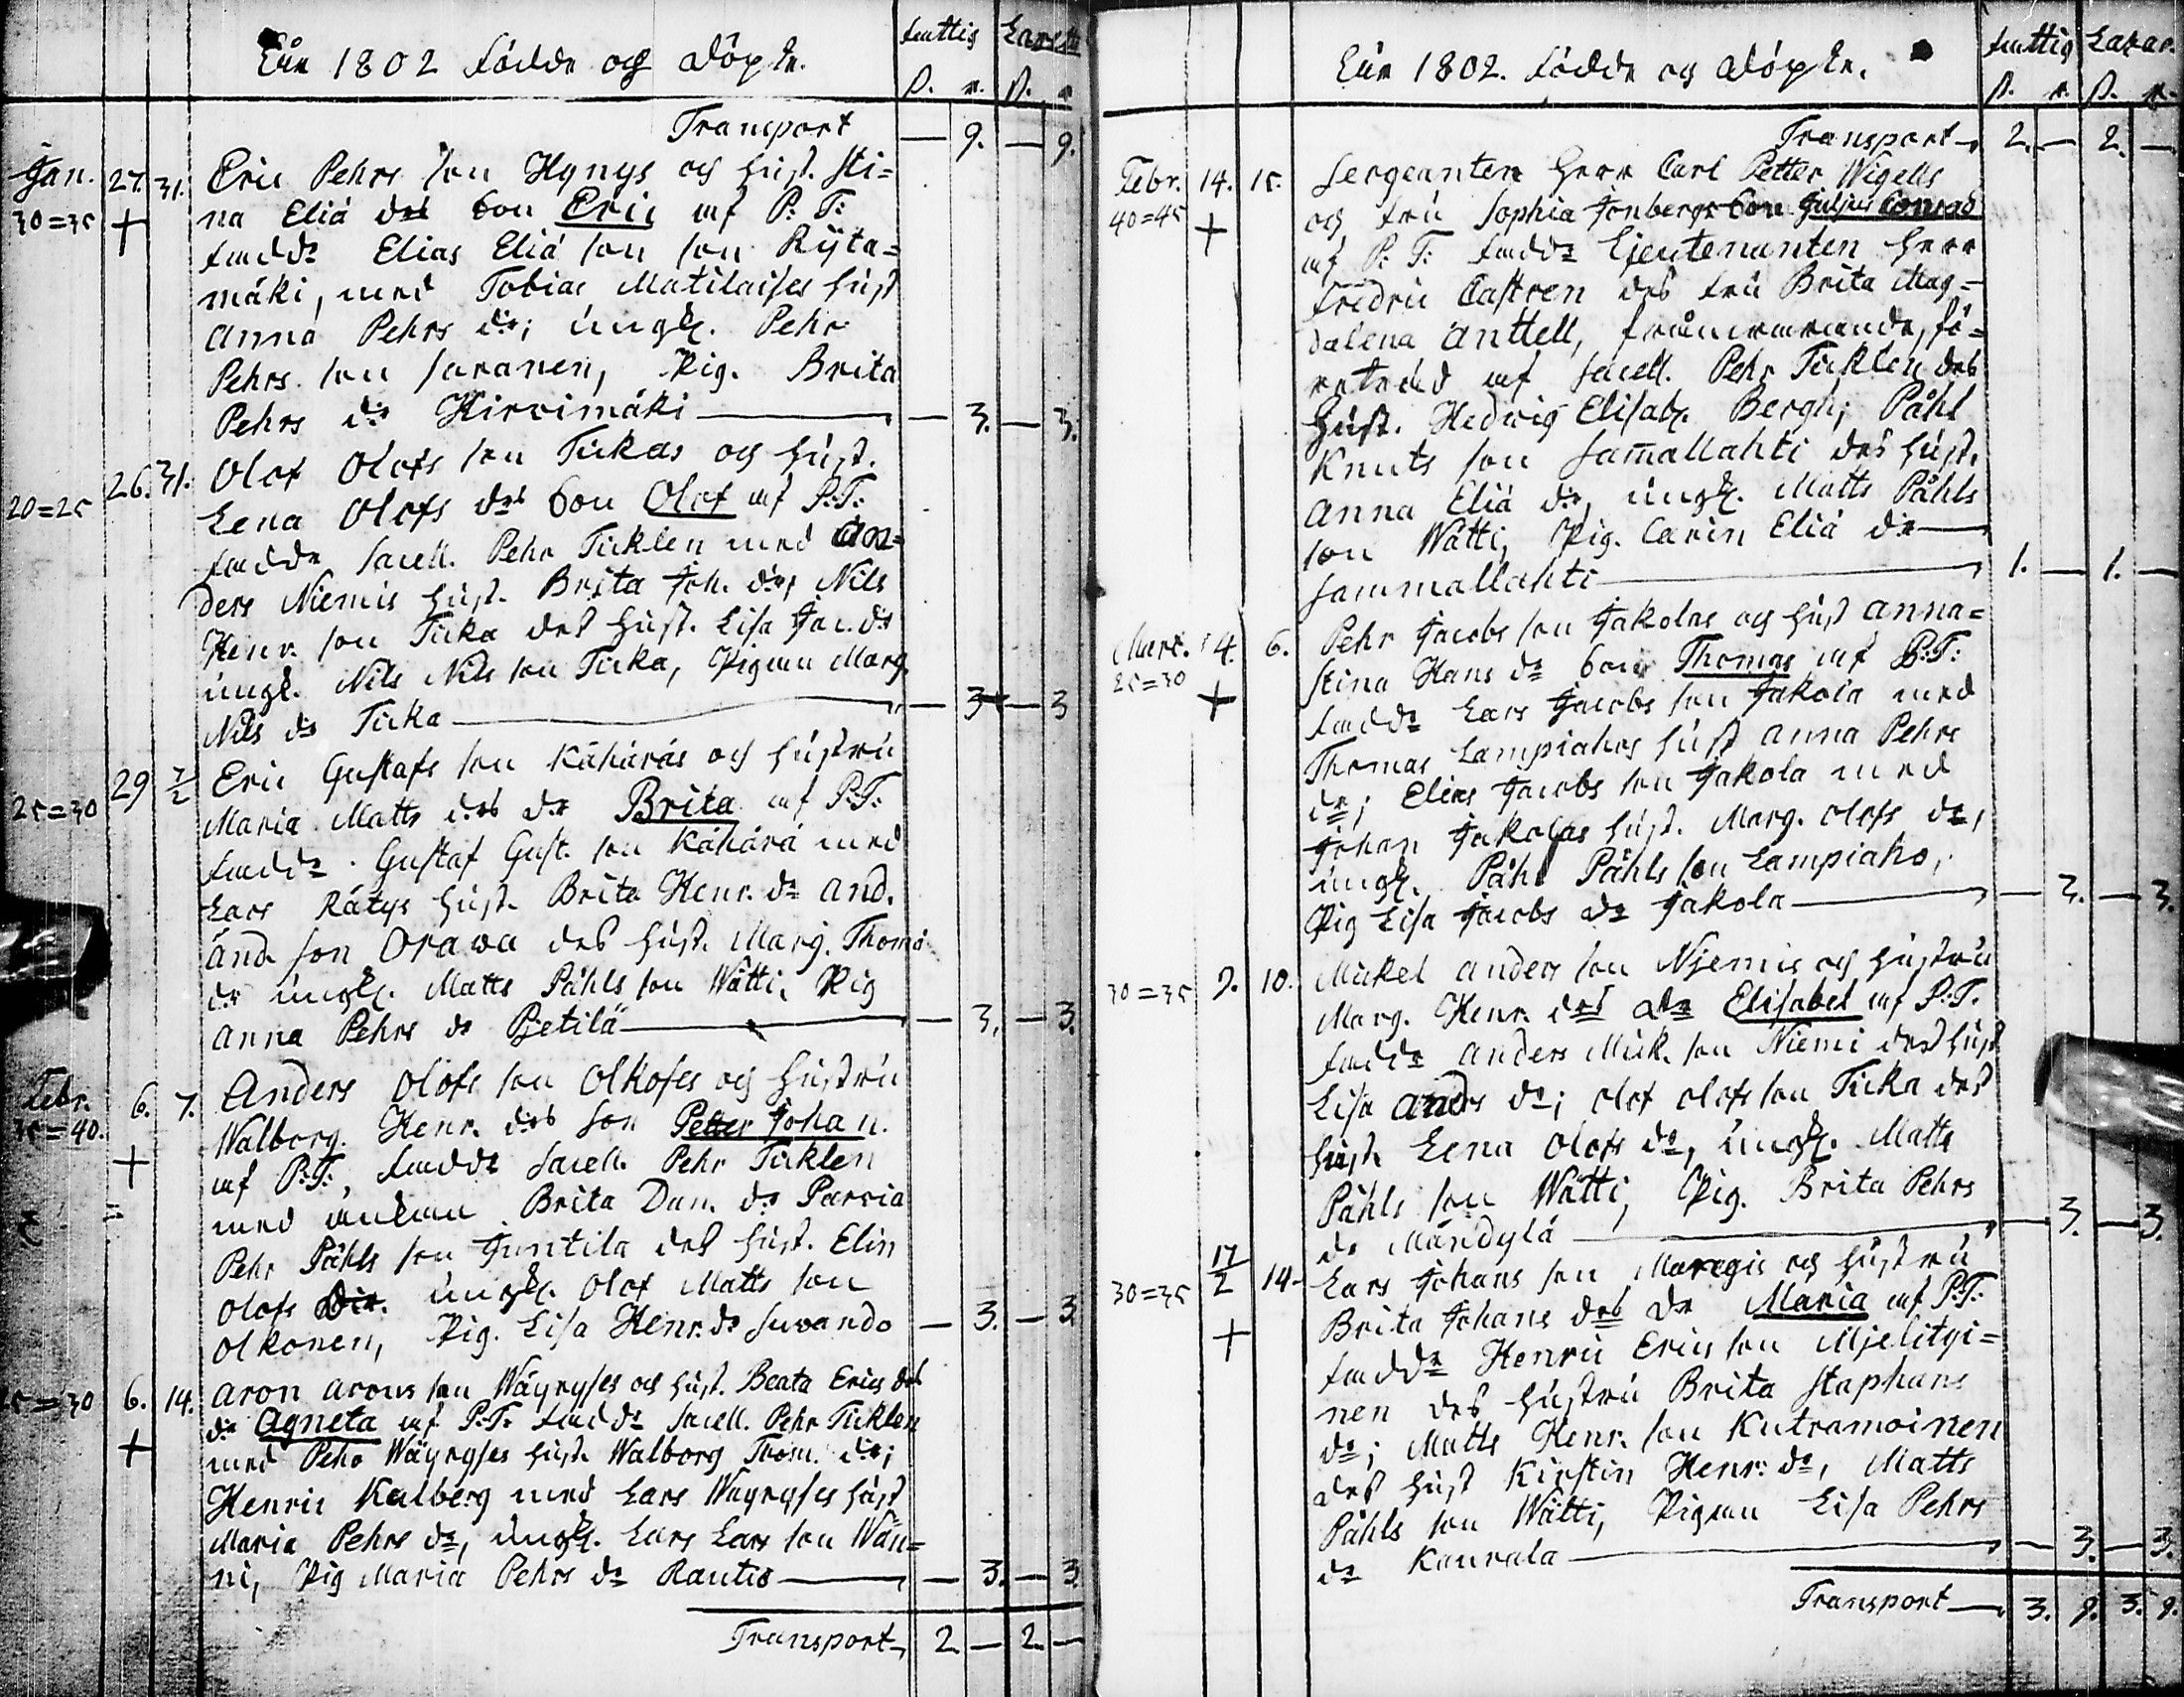 Åhr 1802 födde och döpte.
fattig Lazar.
ß. r. ß. r.
Transport — 9. — 9.
Jan. 27. 31. Eric Pehrs son Hynys och hust. Sti=
30=35 + na Eliä dr Son Eric af P. T.
fadd: Elias Eliä son son Rÿta=
mäki, med Tobias Matilaises hust
Anna Pehrs dr; ungk. Pehr
Pehrs son Saranen, Pig. Brita
Pehrs dr Hirvimäki — 3. — 3.
26. 31. Olof Olofs son Tickas och hust.
20=25 Lena Olofs dr Son Olof af P.T.
fadde Sacell. Pehr Ticklen med An=
ders Niemis hust. Brita Joh. dr, Nils
Henr. son Ticka des hust. Lisa Jac. dr
ungk. Nils Nils son Ticka, Pigan Marg.
Nils dr Ticka — 3 — 3
29 7/2 Eric Gustafs son Kähäräs och hustru
25=30 Maria Matts des dr Brita af P.T.
fadd: Gustaf Gust. son Kähärä med
Lars Rätys hust. Brita Henr. dr And.
And. son Orawa des hust. Marg. Thomä
dr ungk. Matts Påhls son Wätti, Pig
Anna Pehrs dr Pjetilä — 3. — 3.
Febr. 6. 7. Anders Olofs son Olkoses och hustru
35=40. Walborg Henr. des son Petter Johan.
+ af P.T., fadd: Sacell. Pehr Ticklen
med enkan Brita Dan. dr Parvia
Pehr Påhls son Juntila des hust. Elin
Olofs Dr. ungk. Olof Matts son
Olkonen, Pig. Lisa Henr. dr Suvando — 3. — 3.
25=30 6. 14. Aron Arons son Wäyryses och hust. Beata Erics des
dr Agneta af P.T. fadd: Sacell. Pehr Ticklen
+ med Pehr Wäyryses hust. Walborg Thom. dr;
Henric Kalberg med Lars Wäyryses hust
Maria Pehrs dr, ungk. Lars Lars son Wän=
ni, Pig Maria Pehrs dr Rautio — 3. — 3.
Transport 2 — 2 —
Åhr 1802. födde och döpte.
fattig Lazar.
ß. r. ß. r.
Transport 2. — 2. —
Febr. 14. 15. Sergeanten Herr Carl Petter Wigells
40=45 + och fru Sophia Fonbergs Son Julius Conrad
af P. T. fadd: Lieutenanten Herr
Fredric Castren des fru Brita Mag=
dalena Anttell, frånvarande, fö=
reträdd af Sacell. Pehr Ticklen des
hust. Hedwig Elisab. Bergh; Påhl
Knuts son Sam̄allahti des hust.
Anna Eliä dr, ungk. Matts Påhls
son Wätti, Pig. Carin Eliä dr
Sammallahti — 1. — 1. —
Mart. 4. 6. Pehr Jacobs son Jakolas och hust Anna=
25=30 Stina Hans dr Son Thomas af P.T.
+ fadd: Lars Jacobs son Jakola med
Thomas Lampiahos hust Anna Pehrs
dr; Elias Jacobs son Jakola med
Johan Jakolas hust. Marg. Olofs dr,
ungk. Påhl Påhls son Lampiaho,
Pig Lisa Jacobs dr Jakola — 3. — 3.
30=35 9. 10. Mickel Anders son Niemis och hustru
Marg. Henr. des dr Elisabet af P.T.
fadd: Anders Mick. son Niemi des hust
Lisa Anders dr; Olof Olofs son Ticka des
hust. Lena Olofs dr, ungk. Matts
Påhls son Wätti, Pig. Brita Pehrs
dr Mändylä — 3. — 3.
30=35 17/2 14. Lars Johans son och hustru
+ Brita Johans des dr Maria af P.T.
fadd: Henric Erics son Mjelityi=
nen des hustru Brita Staphans
dr; Matts Henr. son Kutramoinen
des hust Kirstin Henr. dr, Matts
Påhls son Wätti, Pigan Lisa Pehrs
dr Kaurala — 3. — 3.
Transport 3. 9. 3. 9.